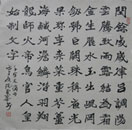 閏餘成歲律呂調陽
雲騰致雨露結為霜
金生麗水玉出崑岡
劍號巨闕珠稱夜光
果珍李柰菜重芥薑
海鹹河淡鱗潛羽翔
龍師火帝鳥官人皇
始制文字